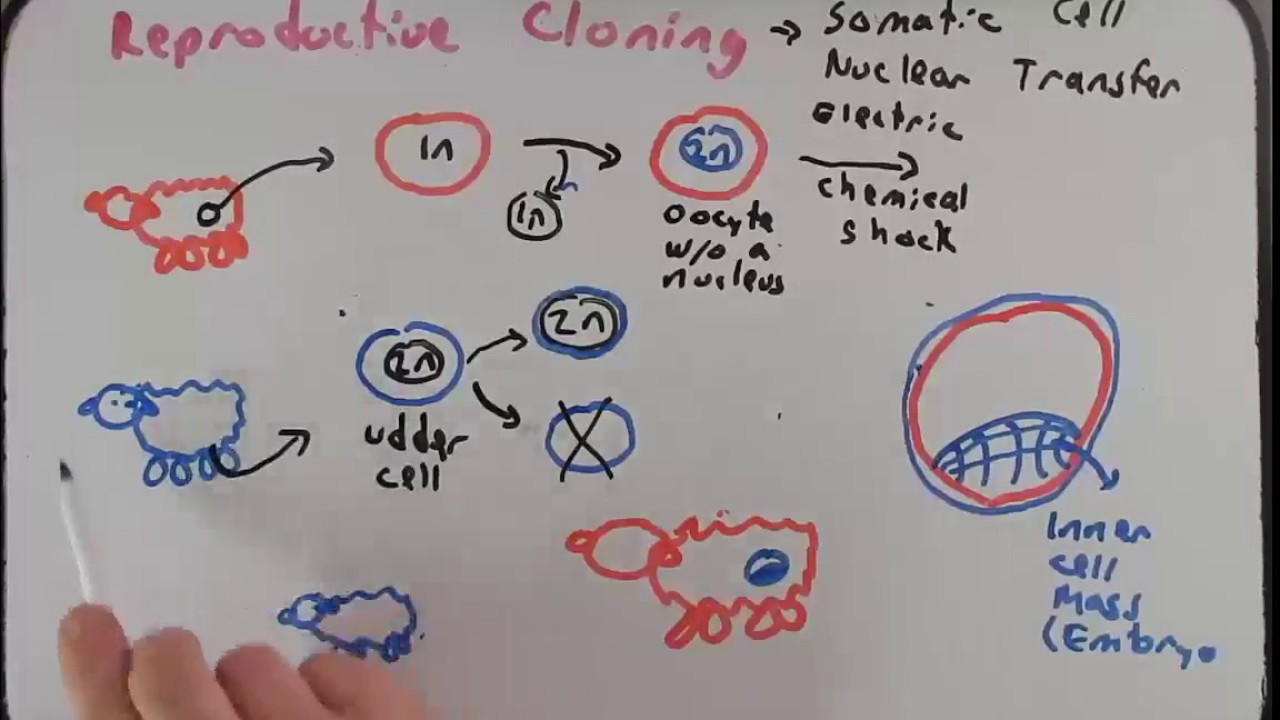 Reproductive Cloning → Somatic Cell
Nuclear Transfer
Electric
1n
2n
chemical
shock
1n
oocyte
w/o a
nucleus
2n
2n
udder
cell
Inner
cell
Mass
(Embryo